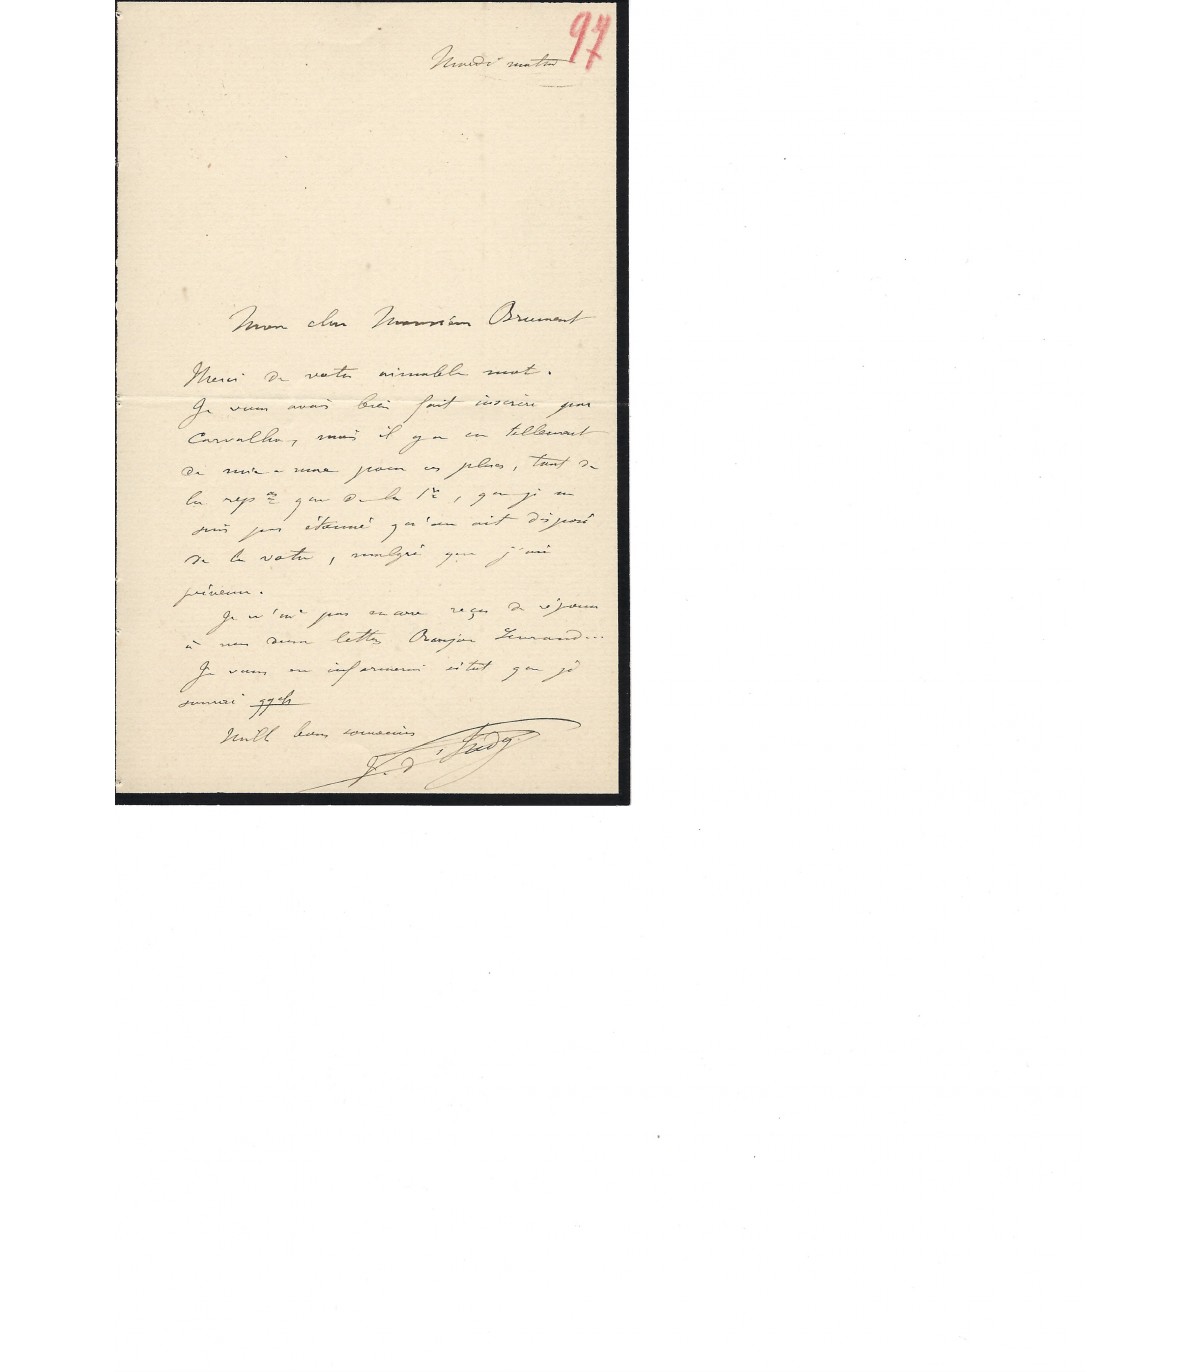 97
Mardi matin
Mon cher Monsieur Brument
Merci de votre aimable mot.
Je vous avais bien fait inscrire par
Carvalho, mais il y a eu tellement
de mic-mac pour ces places, tant de
la rep on que de la 1re, que je ne
suis pas étonné qu'on ait disposé
de la votre, malgré que j'aie
prévenu.
Je n'ai pas encore reçu de réponse
à nos deux lettres
Je vous en informerai sitôt que j'
saurai
Mille bons souvenirs
F. d'